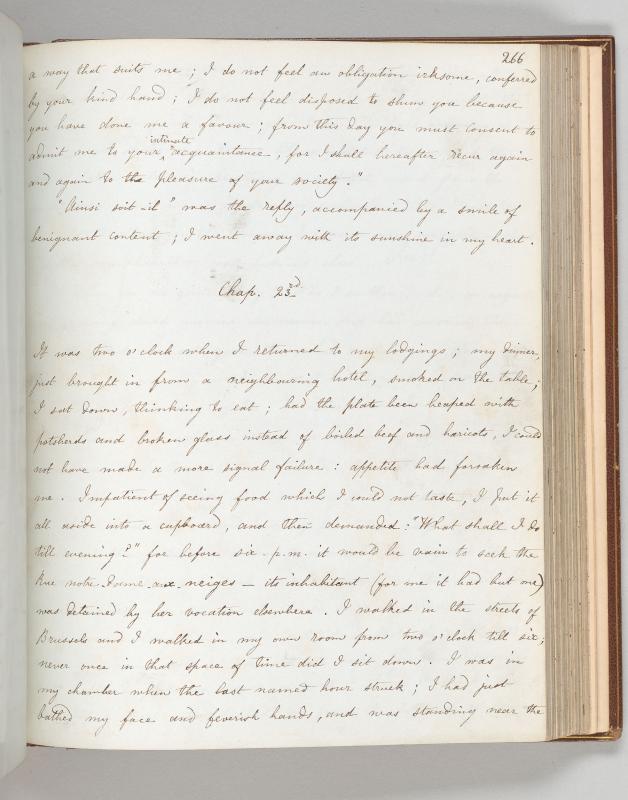 266
a way that suits me ; I do not feel an obligation irksome, conferred
by your kind hand ; I do not feel disposed to shun you because
you have done me a favour ; from this day you must consent to
intimate
admit me to your ^ acquaintance, for I shall hereafter recur again
and again to the pleasure of your society."
"Ainsi soit-il" was the reply, accompanied by a smile of
benignant content ; I went away with its sunshine in my heart.
Chap. 23d
It was two o'clock when I returned to my lodgings ; my dinner,
just brought in from a neighbouring hotel, smoked on the table ;
I sat down, thinking to eat ; had the plate been heaped with
potsherds and broken glass instead of boiled beef and haricots, I could
not have made a more signal failure : appetite had forsaken
me. Impatient of seeing food which I could not taste, I put it
all aside into a cupboard, and then demanded : "What shall I do
till evening?" for before six-p.m. it would be vain to seek the
Rue notre-Dame-aux-neiges — its inhabitant (for me it had but one)
was detained by her vocation elsewhere. I walked in the streets of
Brussels and I walked in my own room from two o'clock till six ;
never once in that space of time did I sit down. I was in
my chamber when the last named hour struck ; I had just
bathed my face and feverish hands, and was standing near the